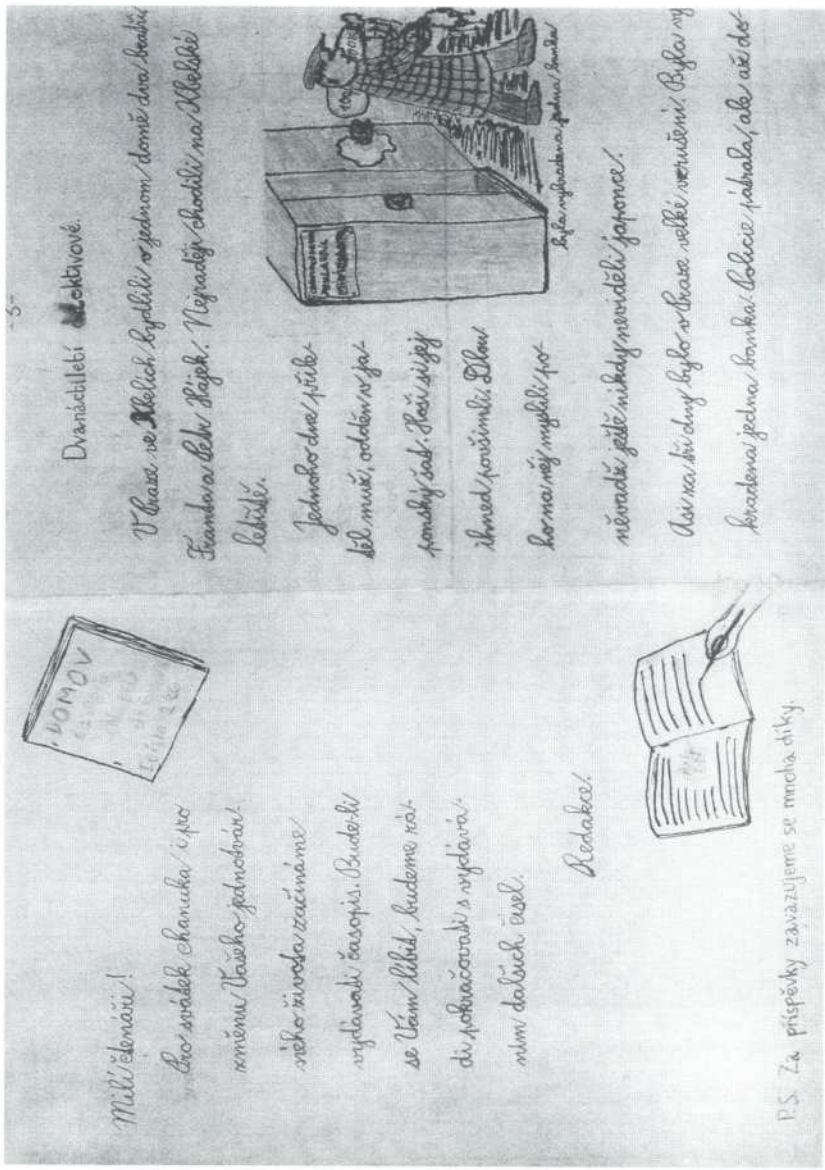 Milí čtenáři!
Pro svátek chanuka i pro
změnu Vašeho jednotvár-
ného života začínáme
vydávati časopis. Bude-li
se Vám líbit, budeme rá-
di pokračovati s vydává-
ním dalších čísel.
Redakce.
P.S. Za příspěvky zavazujeme se mnoha díky.
DOMOV
-5-
Dvanáctiletí detektivové.
V Praze ve Kbelích bydlili v jednom domě dva bratři
Franda a Petr Hájek. Nejraději chodili na Kbelské
letiště.
Jednoho dne přile-
těl muž, odděn v ja-
ponský šat. Hoši si jej
ihned povšimli. Dlou-
ho na něj mysleli po-
něvadž ještě nikdy neviděli japonce.
Asi za tři dny bylo v Praze velké vzrušení. Byla vy
kradena jedna banka. Policie pátrala, ale až do-
byla vykradena jedna banka